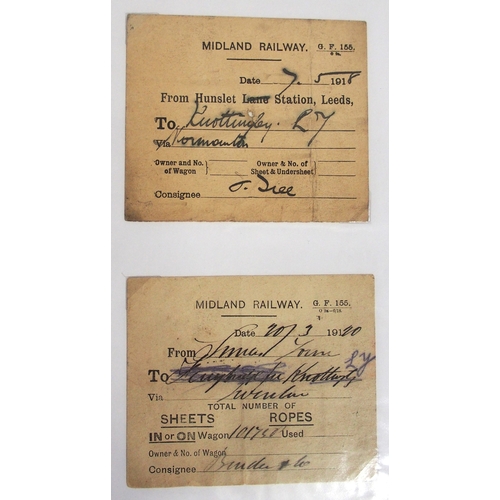 MIDLAND RAILWAY. G. F. 155.
Date 7. 5 1918
From Hunslet Lane Station, Leeds,
To Knottingley. LY
Via Normanton
Owner and No. of Wagon } Owner & No. of Sheet & Undersheet }
Consignee
MIDLAND RAILWAY. G. F. 155.
Date 20/3 1920
From Town
To Knottingley LY
Via Swinton
TOTAL NUMBER OF
SHEETS ROPES
IN or ON Wagon Used
Owner & No. of Wagon
Consignee & Co